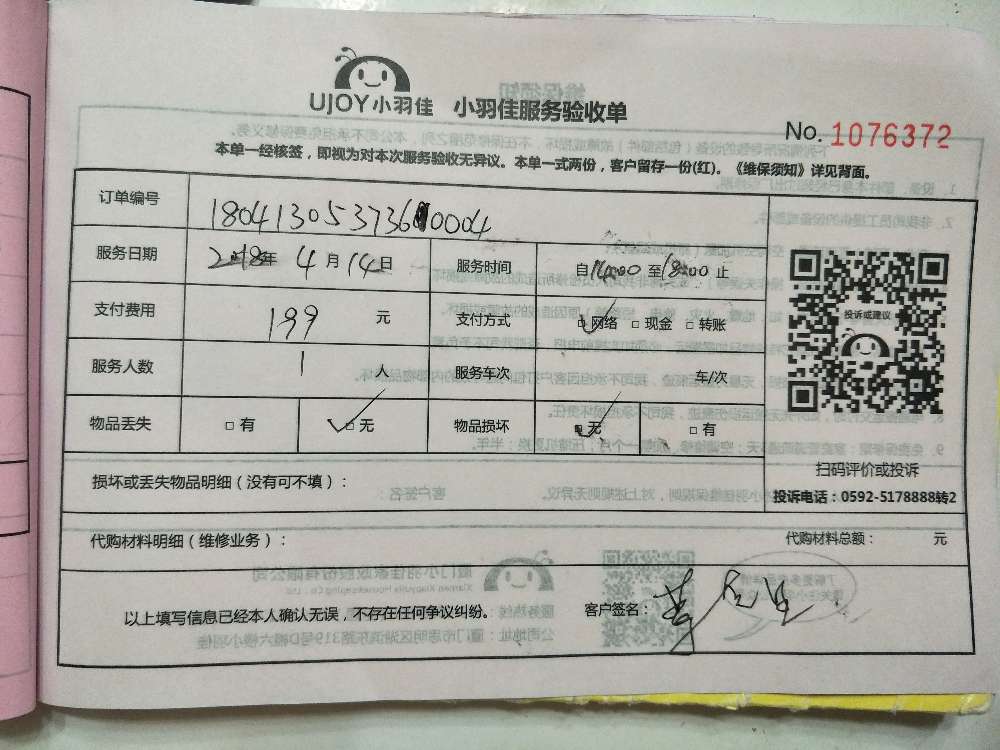 UJOY小羽佳 小羽佳服务验收单
No. 1076372
本单一经核签，即视为对本次服务验收无异议。本单一式两份，客户留存一份(红)。《维保须知》详见背面。
订单编号 180413053736 0004
服务日期 2018年 4月14日 服务时间 自14:00至18:00止
支付费用 199 元 支付方式 □网络 □现金 □转账
服务人数 1 人 服务车次 车/次
物品丢失 □有 □无 物品损坏 □无 □有
投诉或建议
扫码评价或投诉
投诉电话：0592-5178888转2
损坏或丢失物品明细（没有可不填）：
代购材料明细（维修业务）： 代购材料总额： 元
以上填写信息已经本人确认无误，不存在任何争议纠纷。 客户签名：